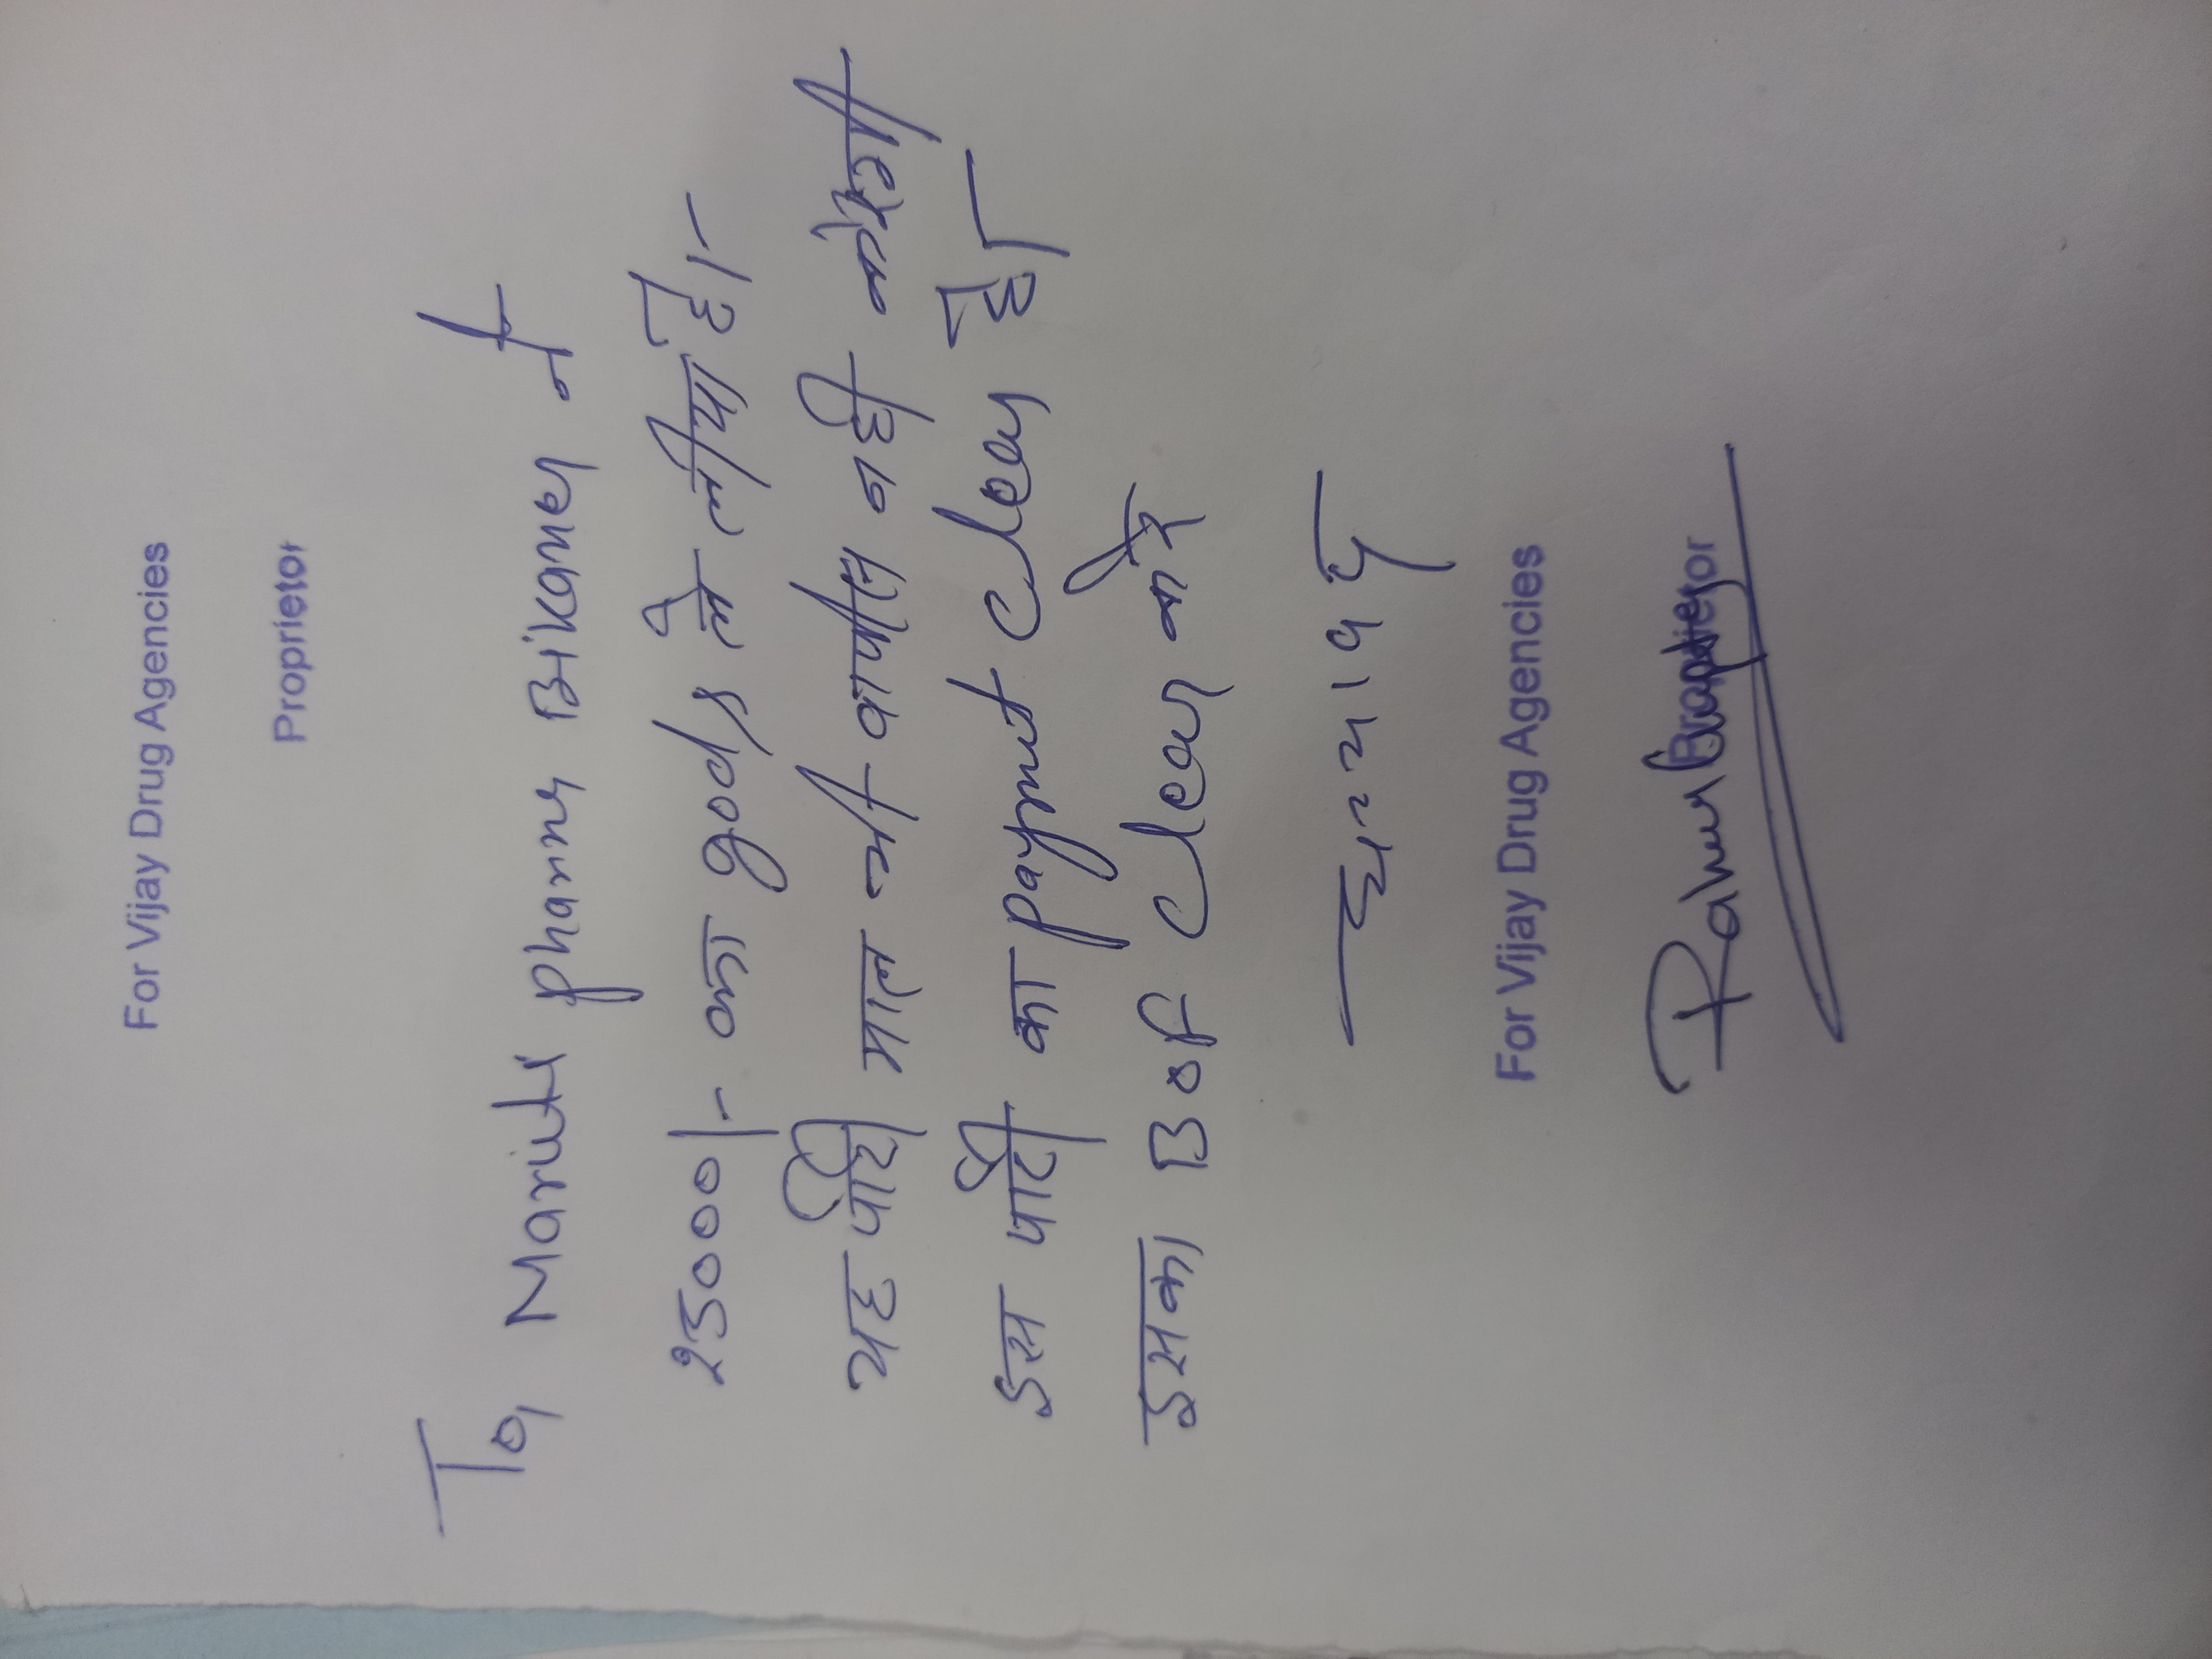 For Vijay Drug Agencies
Proprietor
To, Maruti pharma Bikaner ने
25000/- का goods ले लीया है।-
यह पार्टी माल भी वापीस न ही करती
इस पार्टी का payment clear है
इसका BOF clear करे
धन्यवाद
For Vijay Drug Agencies
Proprietor